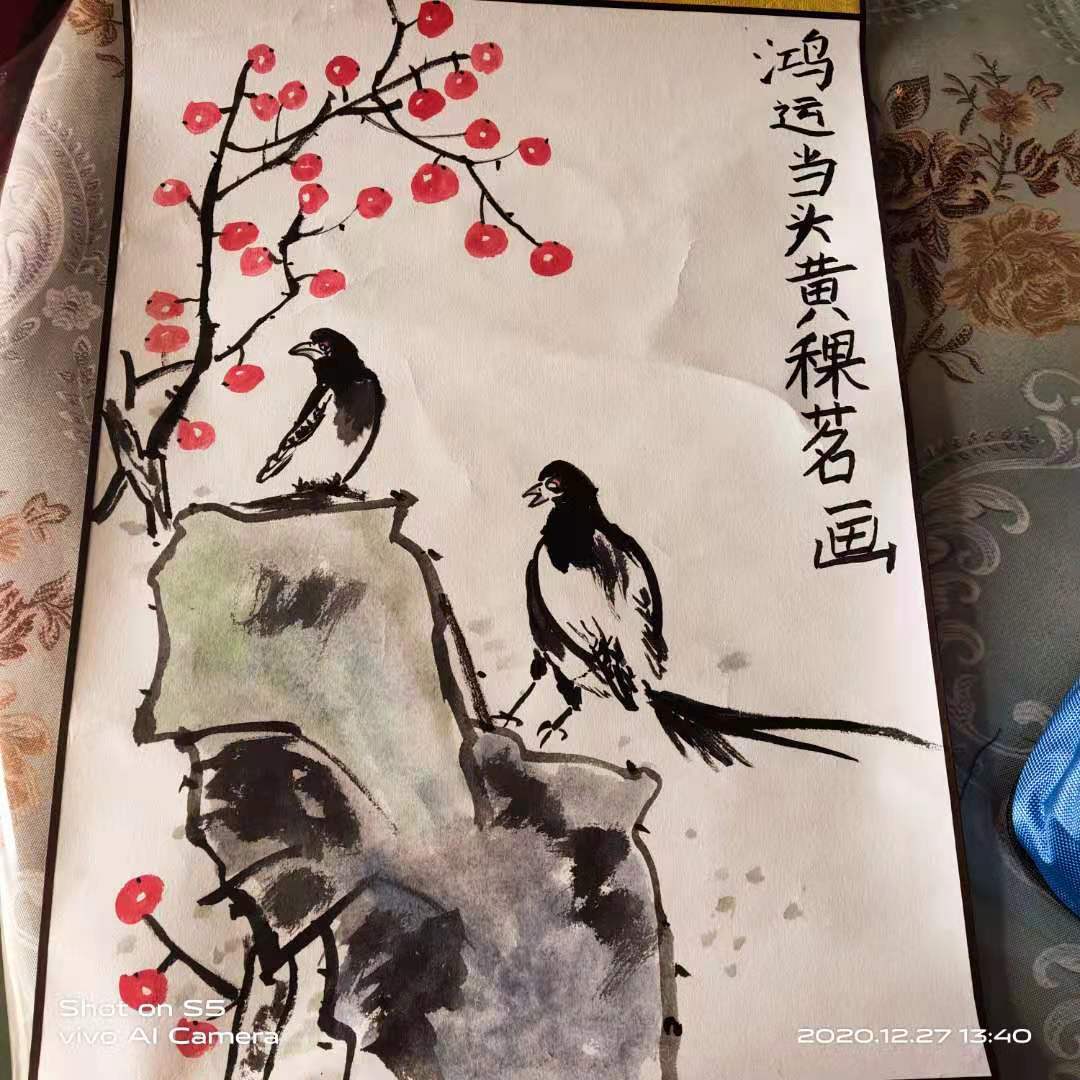 鸿运当头黄稞茗画
Shot on S5
vivo AI Camera
2020.12.27 13:40